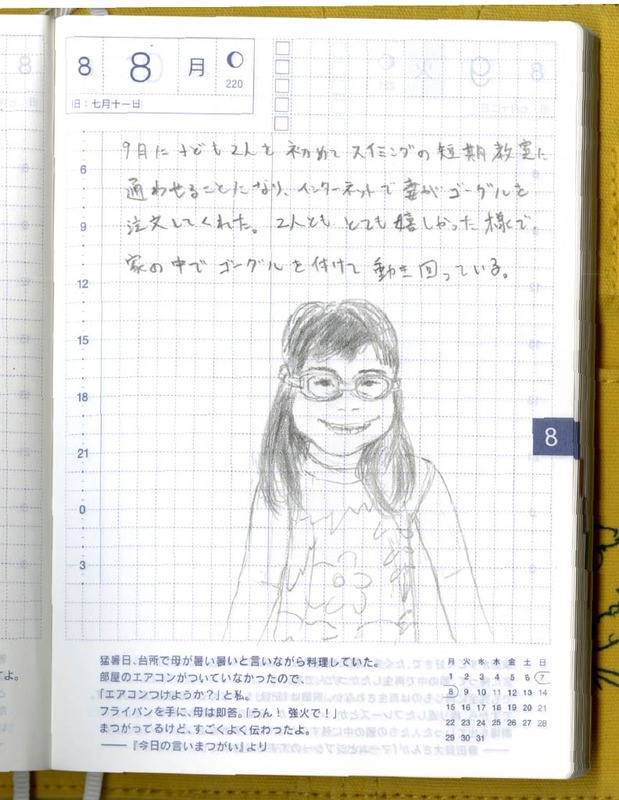 8 8 月 220
旧：七月十一日
9月に子ども2人を初めてスイミングの短期教室に
通わせることになり、インターネットで妻がゴーグルを
注文してくれた。2人とも とても嬉しかった様で、
家の中でゴーグルを付けて動き回っている。
6
9
12
15
18
21
0
3
8
猛暑日、台所で母が暑い暑いと言いながら料理していた。
部屋のエアコンがついていなかったので、
「エアコンつけようか？」と私。
フライパンを手に、母は即答。「うん！ 強火で！」
まつがってるけど、すごくよく伝わったよ。
——『今日の言いまつがい』より
月 火 水 木 金 土 日
1 2 3 4 5 6 7
8 9 10 11 12 13 14
15 16 17 18 19 20 21
22 23 24 25 26 27 28
29 30 31
すよ。